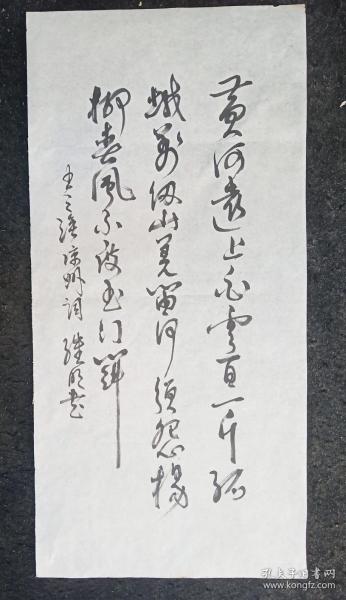 黄河远上白云直一片孤
城万仞山羌笛何须怨杨
柳春风不度玉门关
王之涣凉州词 继明书
孔夫子旧书网
www.kongfz.com